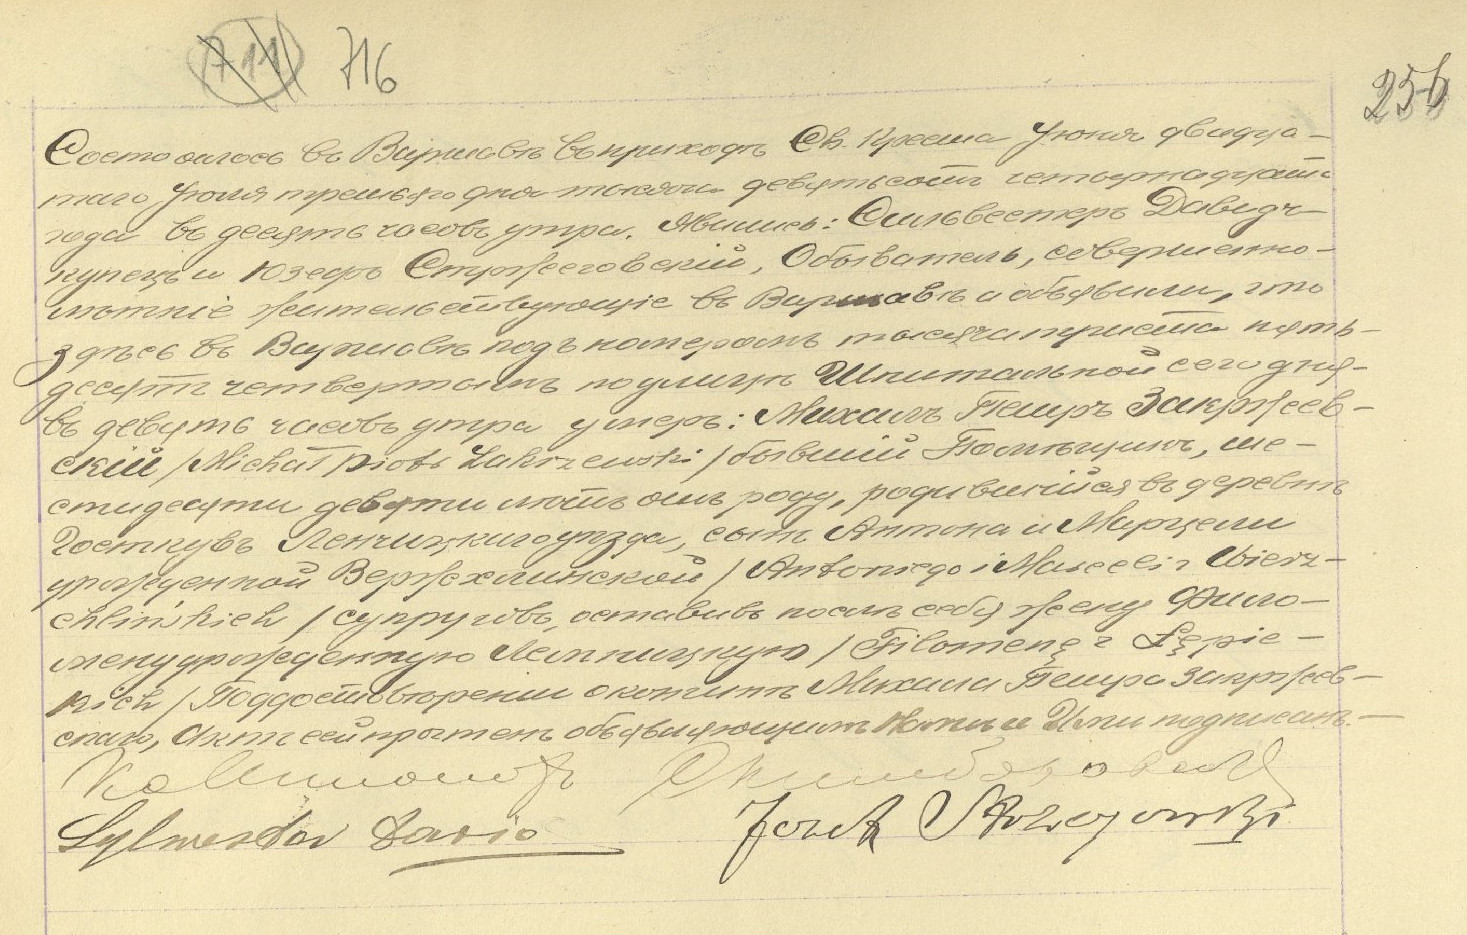 711 716
256
Состоялось въ Варшавѣ въ приходѣ Св. Креста Іюня двадца-
таго Іюля третьяго дня тысяча девятьсотъ четырнадцатаго
года въ десять часовъ утра. Явились: Сильвестеръ Давидъ
купецъ и Юзефъ Стржеговскій, Обыватель, совершенно-
лѣтніе жительствующіе въ Варшавѣ и объявили, что
здѣсь въ Варшавѣ подъ номеромъ тысяча триста пять-
десятъ четвертымъ по улицѣ Шпитальной сего дня
въ девять часовъ утра умеръ: Михалъ Петръ Закржев-
скій /Michał Piotr Zakrzewski/ бывшій Помѣщикъ, ше-
стидесяти девяти лѣтъ отъ роду, родившійся въ деревнѣ
Ленчицкаго уѣзда, сынъ Антона и Марцели
урожденной Вержхлинской /Antoniego i Marceli z Wierz-
chlińskich/ супруговъ, оставивъ послѣ себя жену Фило-
мену урожденную /Filomenę z
kich/ По удостовѣреніи о кончинѣ Михала Петра Закржев-
скаго, Актъ сей прочтенъ объявляющимъ Нами и Ими подписанъ.
Józef Strzegowski